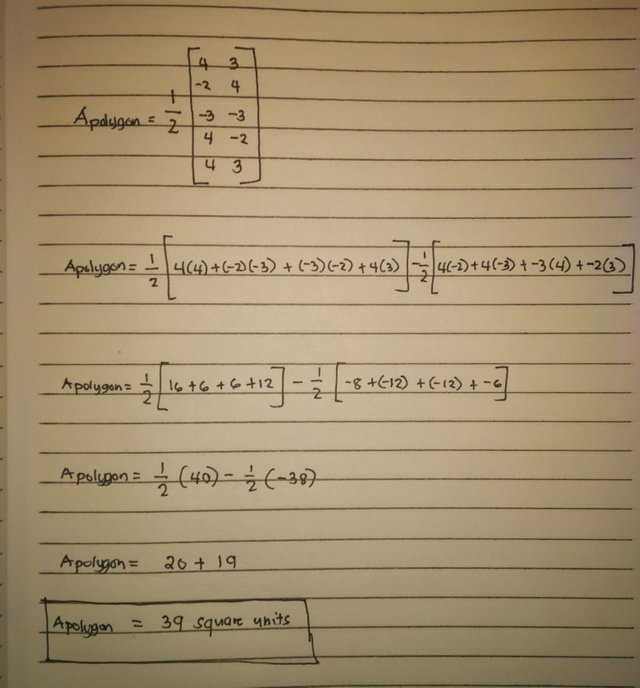 4 3
-2 4
A polygon = 1/2 -3 -3
4 -2
4 3
A polygon = 1/2 [4(4)+(-2)(-3) + (-3)(-2) +4(3)] - 1/2 [4(-2)+4(-3)+-3(4)+-2(3)]
A polygon = 1/2 [16 +6 + 6 +12] - 1/2 [-8 +(-12) +(-12) + -6]
A polygon = 1/2 (40) - 1/2 (-38)
A polygon = 20 + 19
A polygon = 39 square units